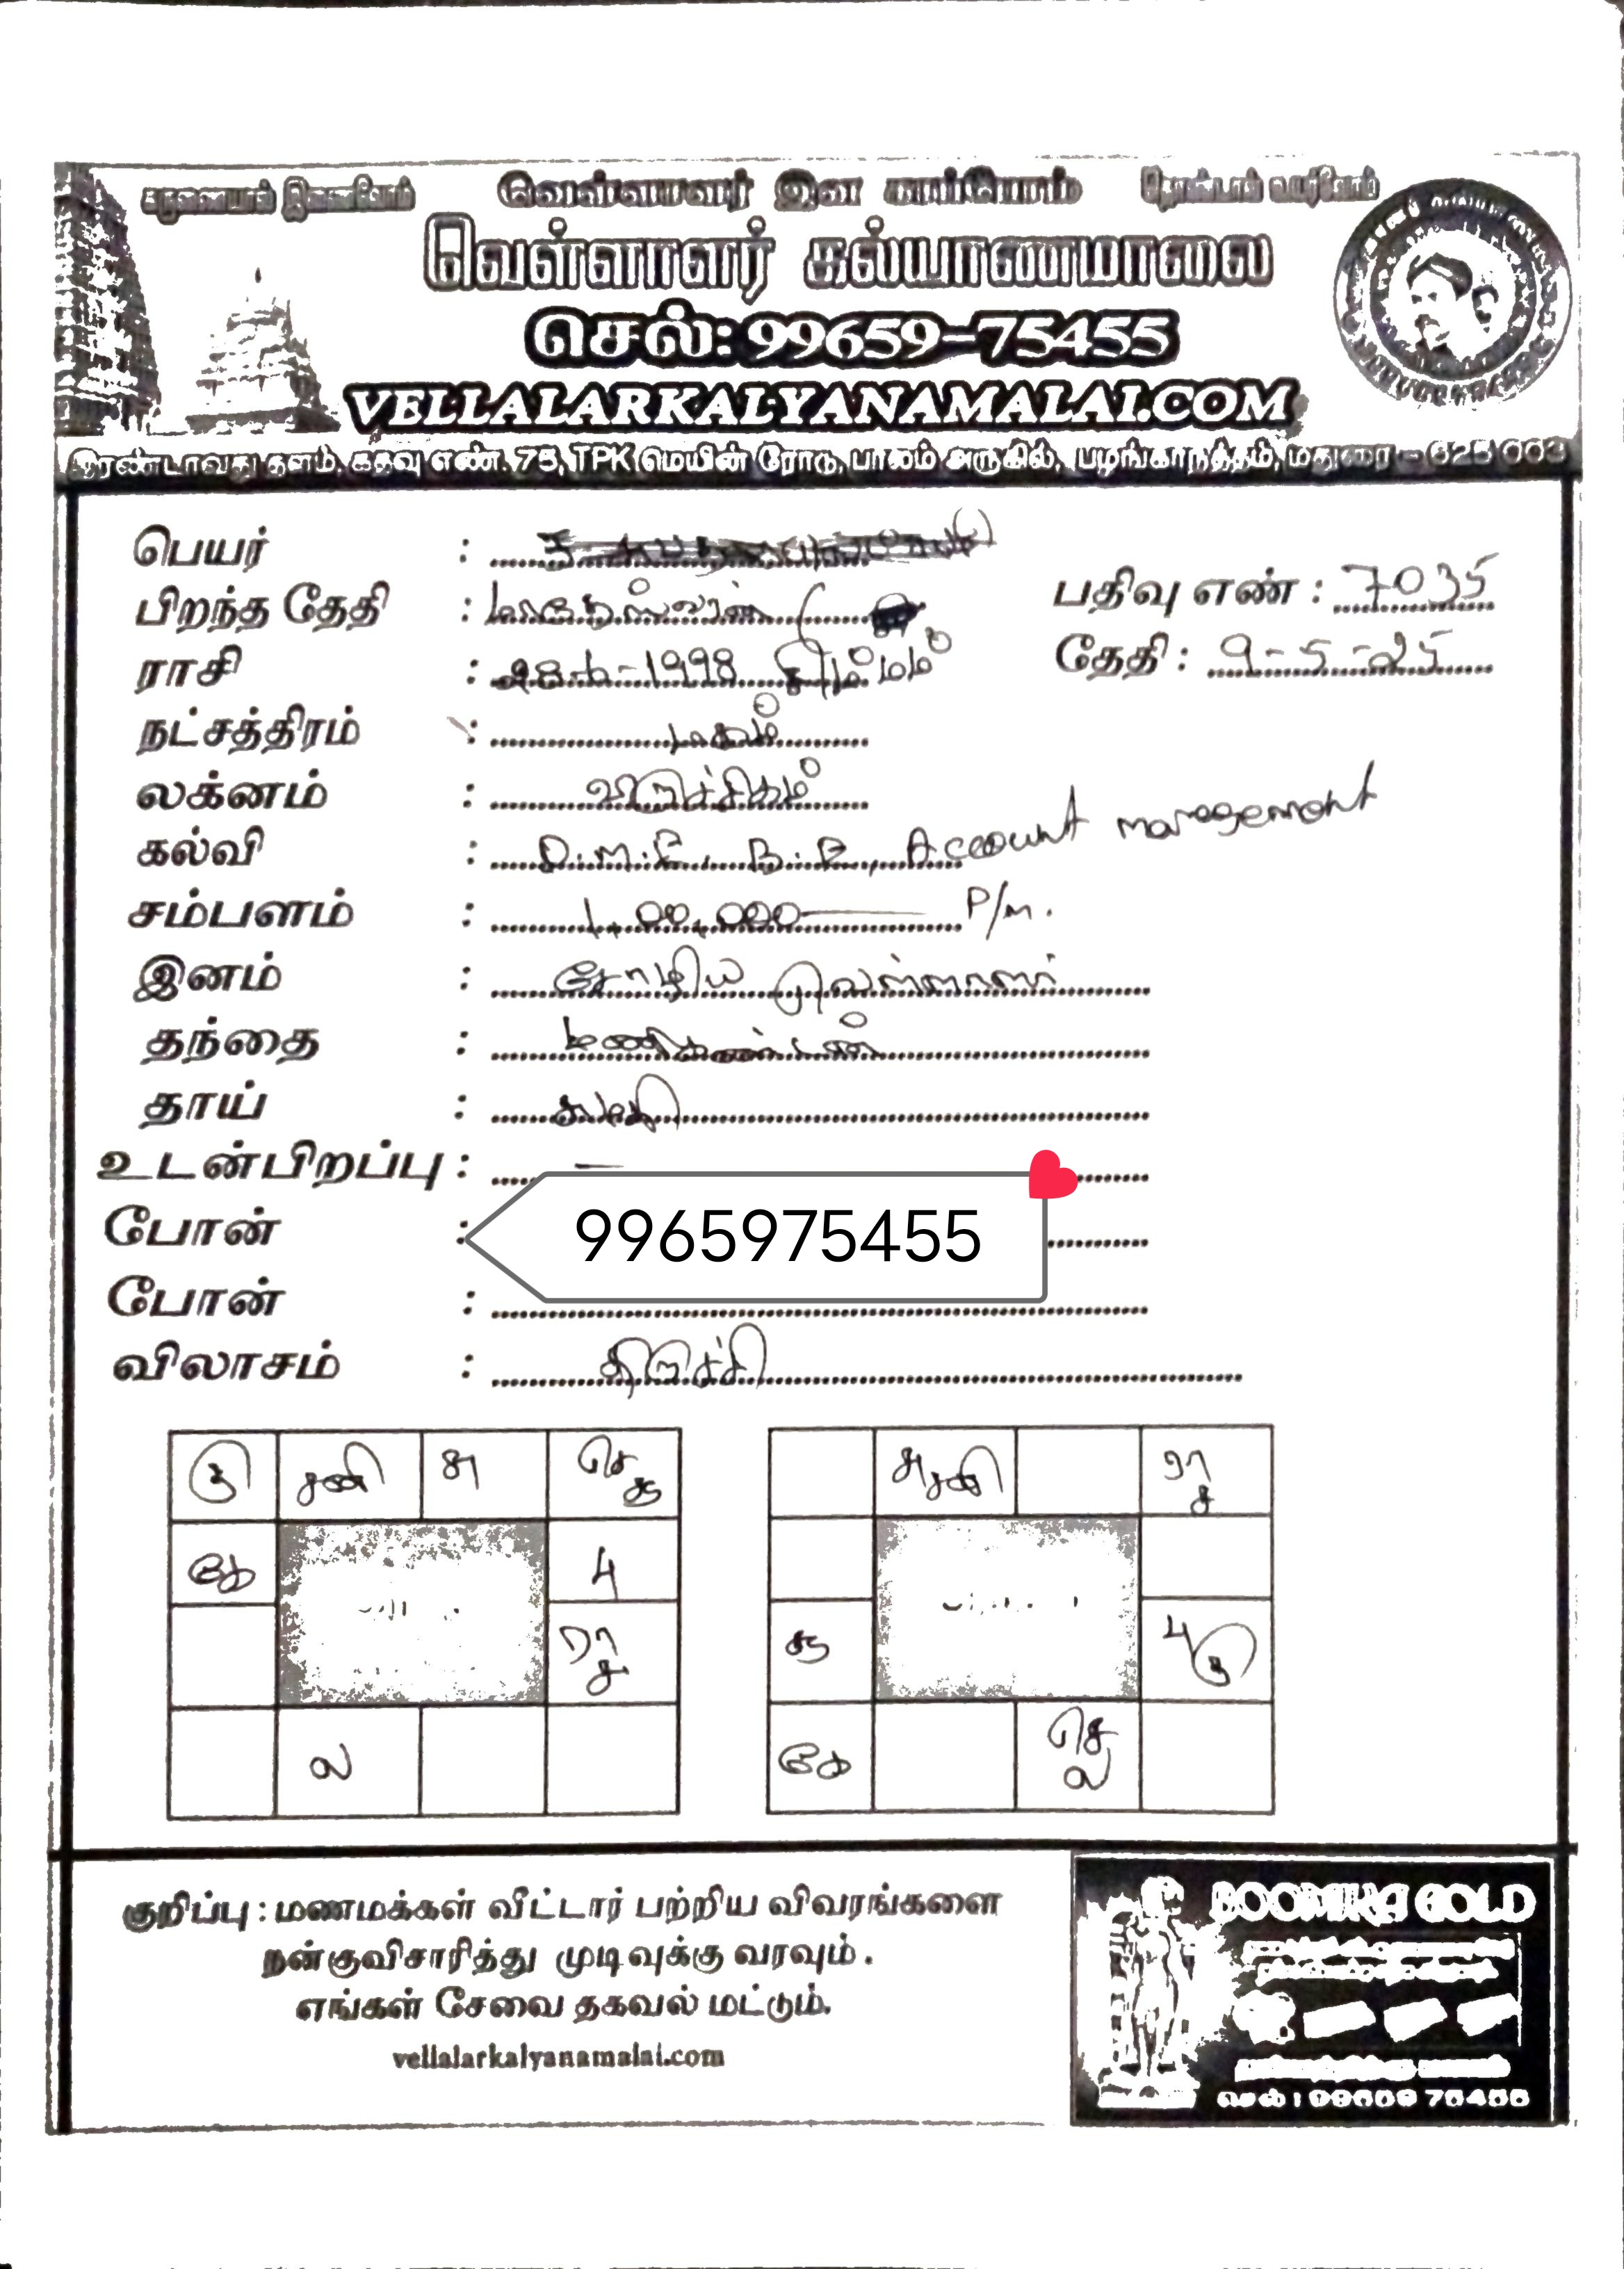 கருணையால் இணைவோம் வெள்ளாளர் இன கார்போம் தொண்டால் உயர்வோம்
வெள்ளாளர் கல்யாணமாலை
செல்: 99659-75455
VELLALARKALYANAMALAI.COM
இரண்டாவது தளம், கதவு எண். 75, TPK மெயின் ரோடு, பாலம் அருகில், பழங்காநத்தம், மதுரை - 625 003
பெயர் :
பிறந்த தேதி : பதிவு எண் : 7035
ராசி : 28-6-1998 சிம்மம் தேதி : 9-5-25
நட்சத்திரம் : மகம்
லக்னம் : விருச்சிகம்
கல்வி : D.M.E., B.E., Account management
சம்பளம் : 1,00,000 P/m.
இனம் : சோழிய வெள்ளாளர்
தந்தை : மணிகண்டன்
தாய் :
உடன்பிறப்பு : —
போன் : 9965975455
போன் :
விலாசம் : திருச்சி
கு சனி சு செ சூ
கே பு
ரா ச
ல
சு சனி ரா ச
சூ பு கு
கே செ ல
குறிப்பு : மணமக்கள் வீட்டார் பற்றிய விவரங்களை
நன்குவிசாரித்து முடிவுக்கு வரவும்.
எங்கள் சேவை தகவல் மட்டும்.
vellalarkalyanamalai.com
BOOMIKA GOLD
செல் : 99659 75455